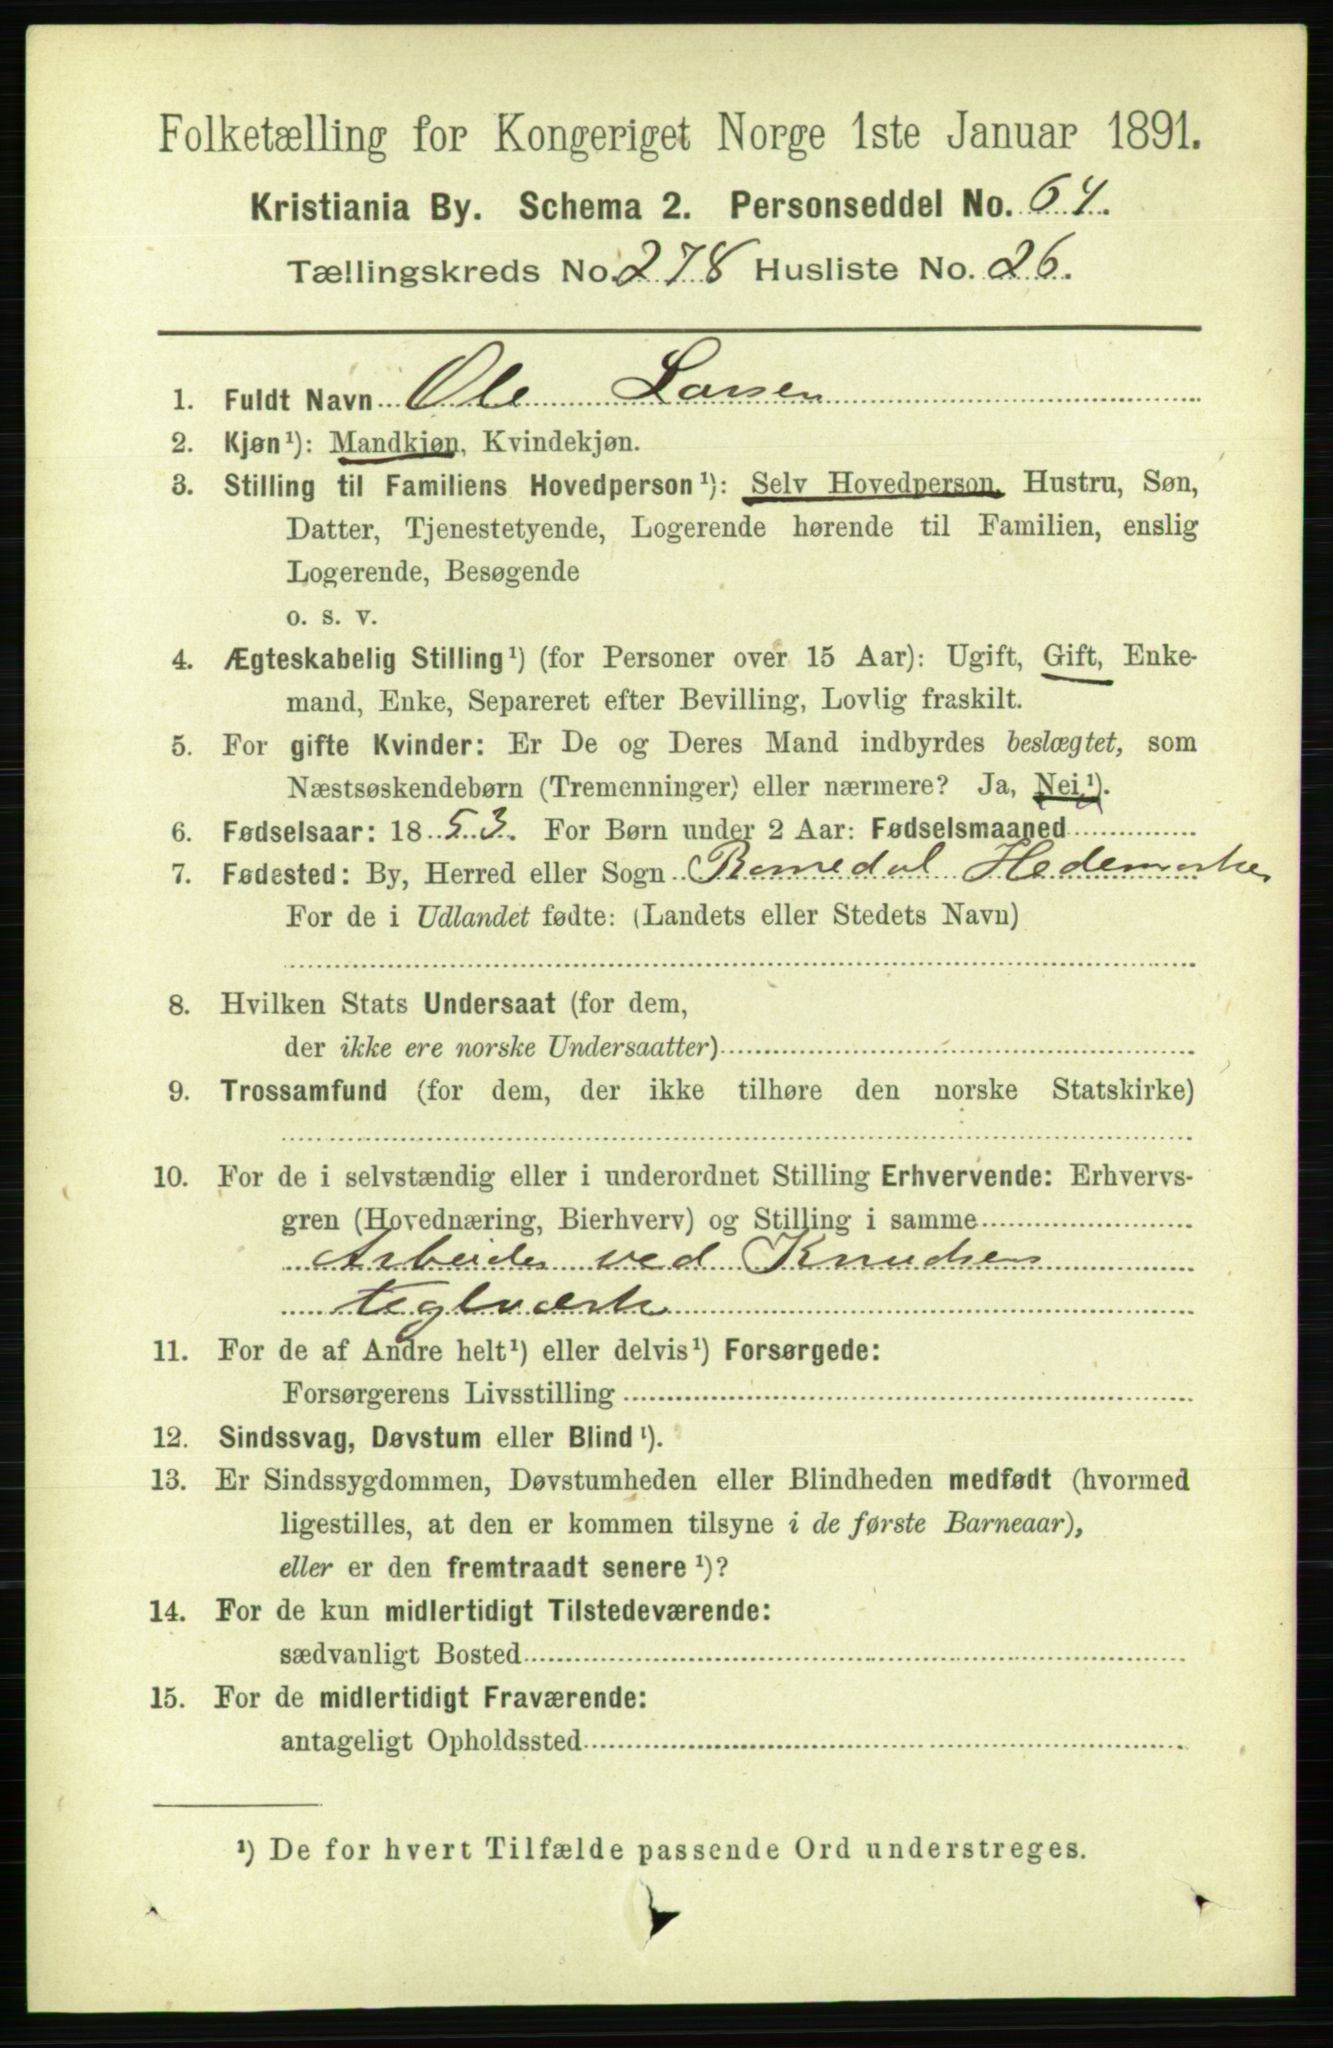 Folketælling for Kongeriget Norge 1ste Januar 1891.
Kristiania By. Schema 2. Personseddel No. 64.
Tællingskreds No. 278 Husliste No. 26.
1. Fuldt Navn Ole Larsen
2. Kjøn¹): Mandkjøn, Kvindekjøn.
3. Stilling til Familiens Hovedperson¹): Selv Hovedperson, Hustru, Søn,
Datter, Tjenestetyende, Logerende hørende til Familien, enslig
Logerende, Besøgende
o. s. v.
4. Ægteskabelig Stilling¹) (for Personer over 15 Aar): Ugift, Gift, Enke-
mand, Enke, Separeret efter Bevilling, Lovlig fraskilt.
5. For gifte Kvinder: Er De og Deres Mand indbyrdes beslægtet, som
Næstsøskendebørn (Tremenninger) eller nærmere? Ja, Nei¹).
6. Fødselsaar: 1853. For Børn under 2 Aar: Fødselsmaaned
7. Fødested: By, Herred eller Sogn Romedal Hedemarken
For de i Udlandet fødte: (Landets eller Stedets Navn)
8. Hvilken Stats Undersaat (for dem,
der ikke ere norske Undersaatter)
9. Trossamfund (for dem, der ikke tilhøre den norske Statskirke)
10. For de i selvstændig eller i underordnet Stilling Erhvervende: Erhvervs-
gren (Hovednæring, Bierhverv) og Stilling i samme
Arbeider ved Knudsens
teglværk
11. For de af Andre helt¹) eller delvis¹) Forsørgede:
Forsørgerens Livsstilling
12. Sindssvag, Døvstum eller Blind¹).
13. Er Sindssygdommen, Døvstumheden eller Blindheden medfødt (hvormed
ligestilles, at den er kommen tilsyne i de første Barneaar),
eller er den fremtraadt senere¹)?
14. For de kun midlertidigt Tilstedeværende:
sædvanligt Bosted
15. For de midlertidigt Fraværende:
antageligt Opholdssted
¹) De for hvert Tilfælde passende Ord understreges.